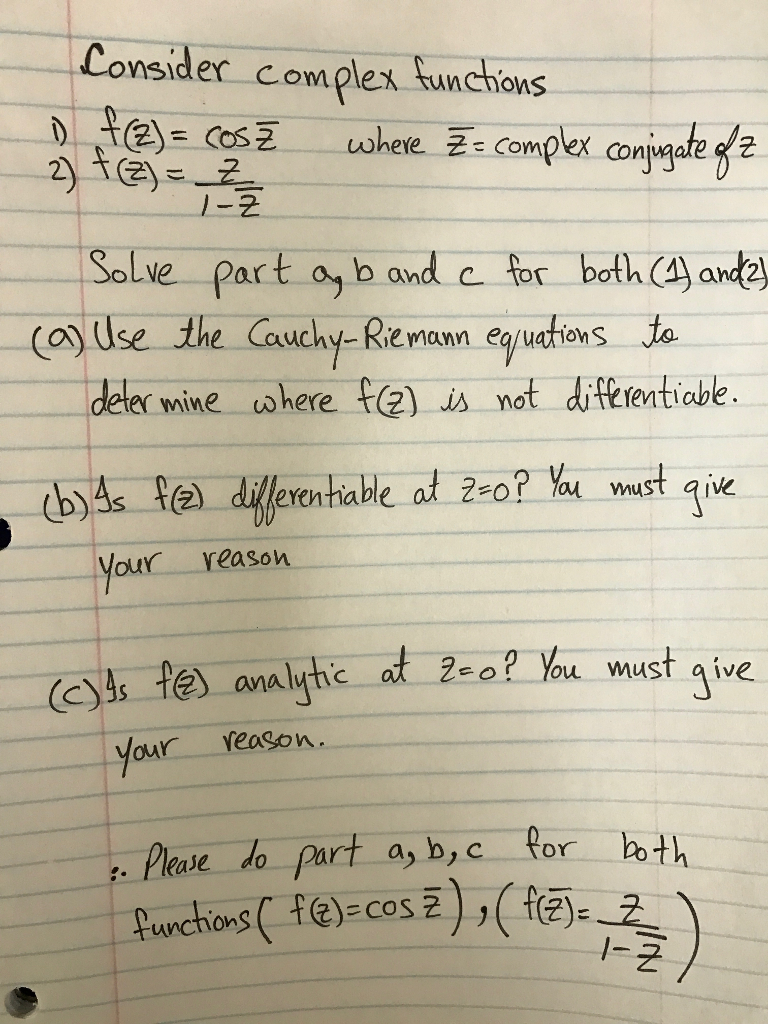 Consider complex functions
1) f(z) = cos z̅ where z̅ = complex conjugate of z
2) f(z) = z / 1-z̅
Solve part a, b and c for both (1) and (2)
(a) Use the Cauchy-Riemann equations to
determine where f(z) is not differentiable.
(b) Is f(z) differentiable at z=0? You must give
your reason
(c) Is f(z) analytic at z=0? You must give
your reason.
:. Please do part a, b, c for both
functions ( f(z)=cos z̅ ) , ( f(z̅)= z / 1-z̅ )